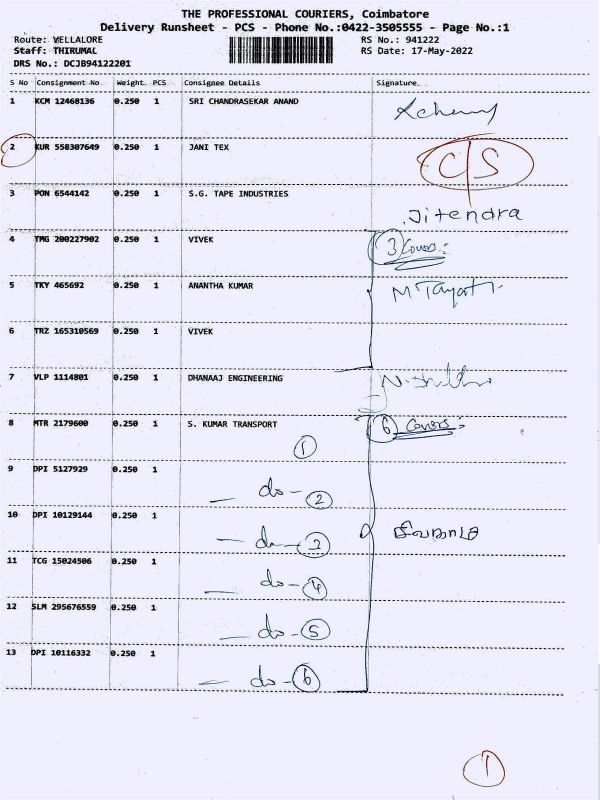 THE PROFESSIONAL COURIERS, Coimbatore
Delivery Runsheet - PCS - Phone No.:0422-3505555 - Page No.:1
Route: VELLALORE RS No.: 941222
Staff: THIRUMAL RS Date: 17-May-2022
DRS No.: DCJB94122201
S No Consignment No Weight. PCS Consignee Details Signature.
1 KCM 12468136 0.250 1 SRI CHANDRASEKAR ANAND
2 KUR 558307649 0.250 1 JANI TEX C/S
3 PON 6544142 0.250 1 S.G. TAPE INDUSTRIES Jitendra
4 TMG 200227902 0.250 1 VIVEK 3 Covers:
5 TKY 465692 0.250 1 ANANTHA KUMAR
6 TRZ 165310569 0.250 1 VIVEK
7 VLP 1114801 0.250 1 DHANAAJ ENGINEERING
8 MTR 2179600 0.250 1 S. KUMAR TRANSPORT 6 Covers:
1
9 DPI 5127929 0.250 1
— do - 2
10 DPI 10129144 0.250 1
— do — 3
11 TCG 15024506 0.250 1
— do - 4
12 SLM 295676559 0.250 1
— do - 5
13 DPI 10116332 0.250 1
— do - 6
1